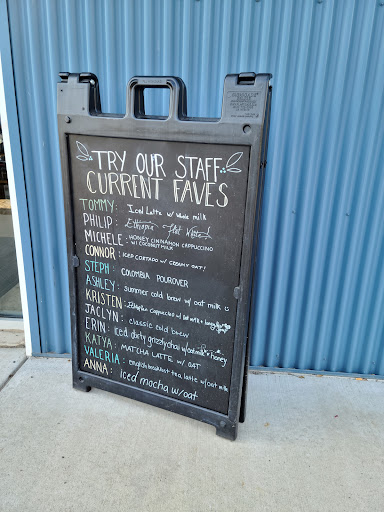 TRY OUR STAFF
CURRENT FAVES
TOMMY: Iced Latte w/ whole milk
PHILIP: Ethiopia Flat White!
MICHELE: - HONEY CINNAMON CAPPUCCINO
W/ COCONUT MILK
CONNOR: ICED CORTADO W/ CREAMY OAT!
STEPH: COLOMBIA POUROVER
ASHLEY: summer cold brew w/ oat milk
KRISTEN: Ethiopia cappuccino w/ oat milk +
JACLYN: classic cold brew
ERIN: iced dirty grizzly chai w/oat milk + honey
KATYA: MATCHA LATTE W/ OAT
VALERIA: english breakfast tea latte w/oat milk
ANNA: iced mocha w/oat